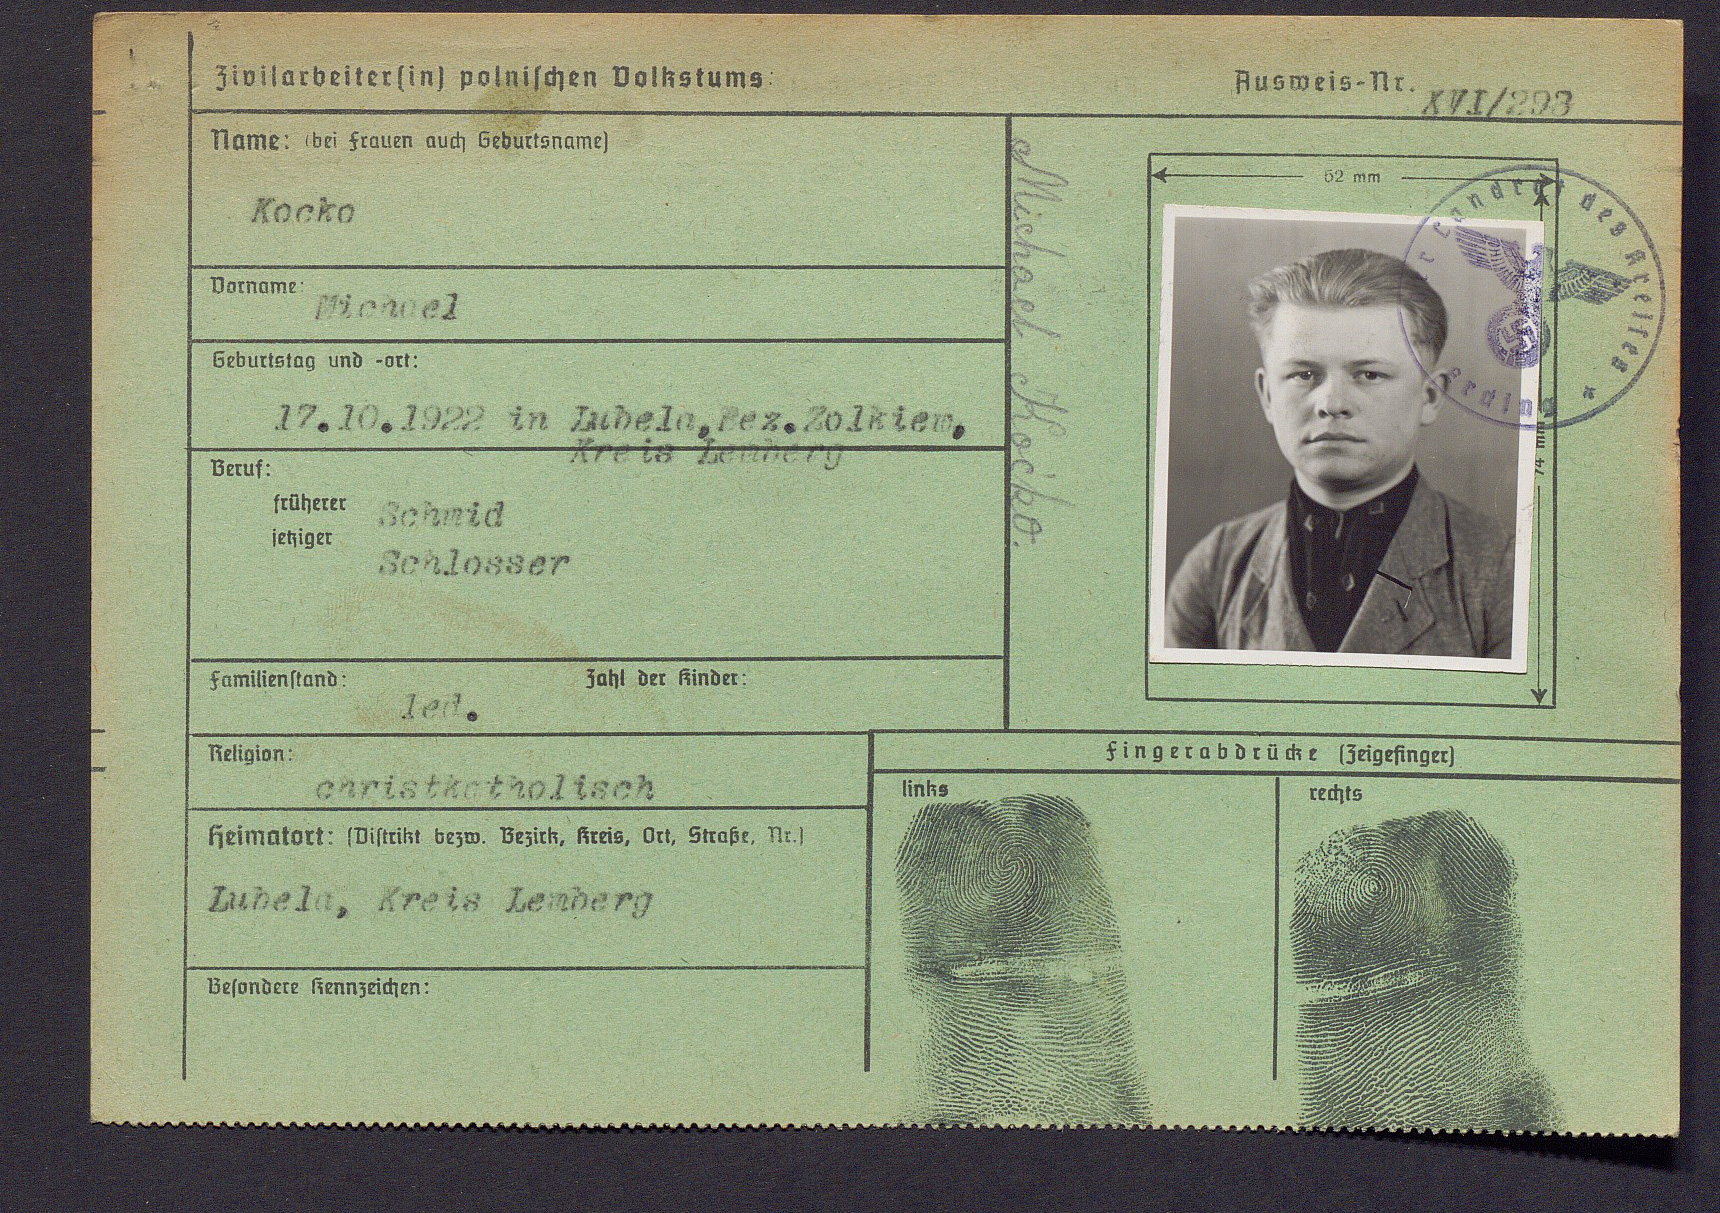 Zivilarbeiter(in) polnischen Volkstums:
Ausweis-Nr. XVI/298
Name: (bei Frauen auch Geburtsname)
Kocko
Vorname:
Michael
Geburtstag und -ort:
17.10.1922 in Lubela, Bez. Zolkiew,
Kreis Lemberg
Beruf:
früherer Schmid
jetziger Schlosser
Familienstand: Zahl der Kinder:
led.
Religion:
christkatholisch
Heimatort: (Distrikt bezw. Bezirk, Kreis, Ort, Straße, Nr.)
Lubela, Kreis Lemberg
Besondere Kennzeichen:
Michael Kocko.
52 mm
74 mm
Landrat des Kreises
Erding
Fingerabdrücke (Zeigefinger)
links
rechts